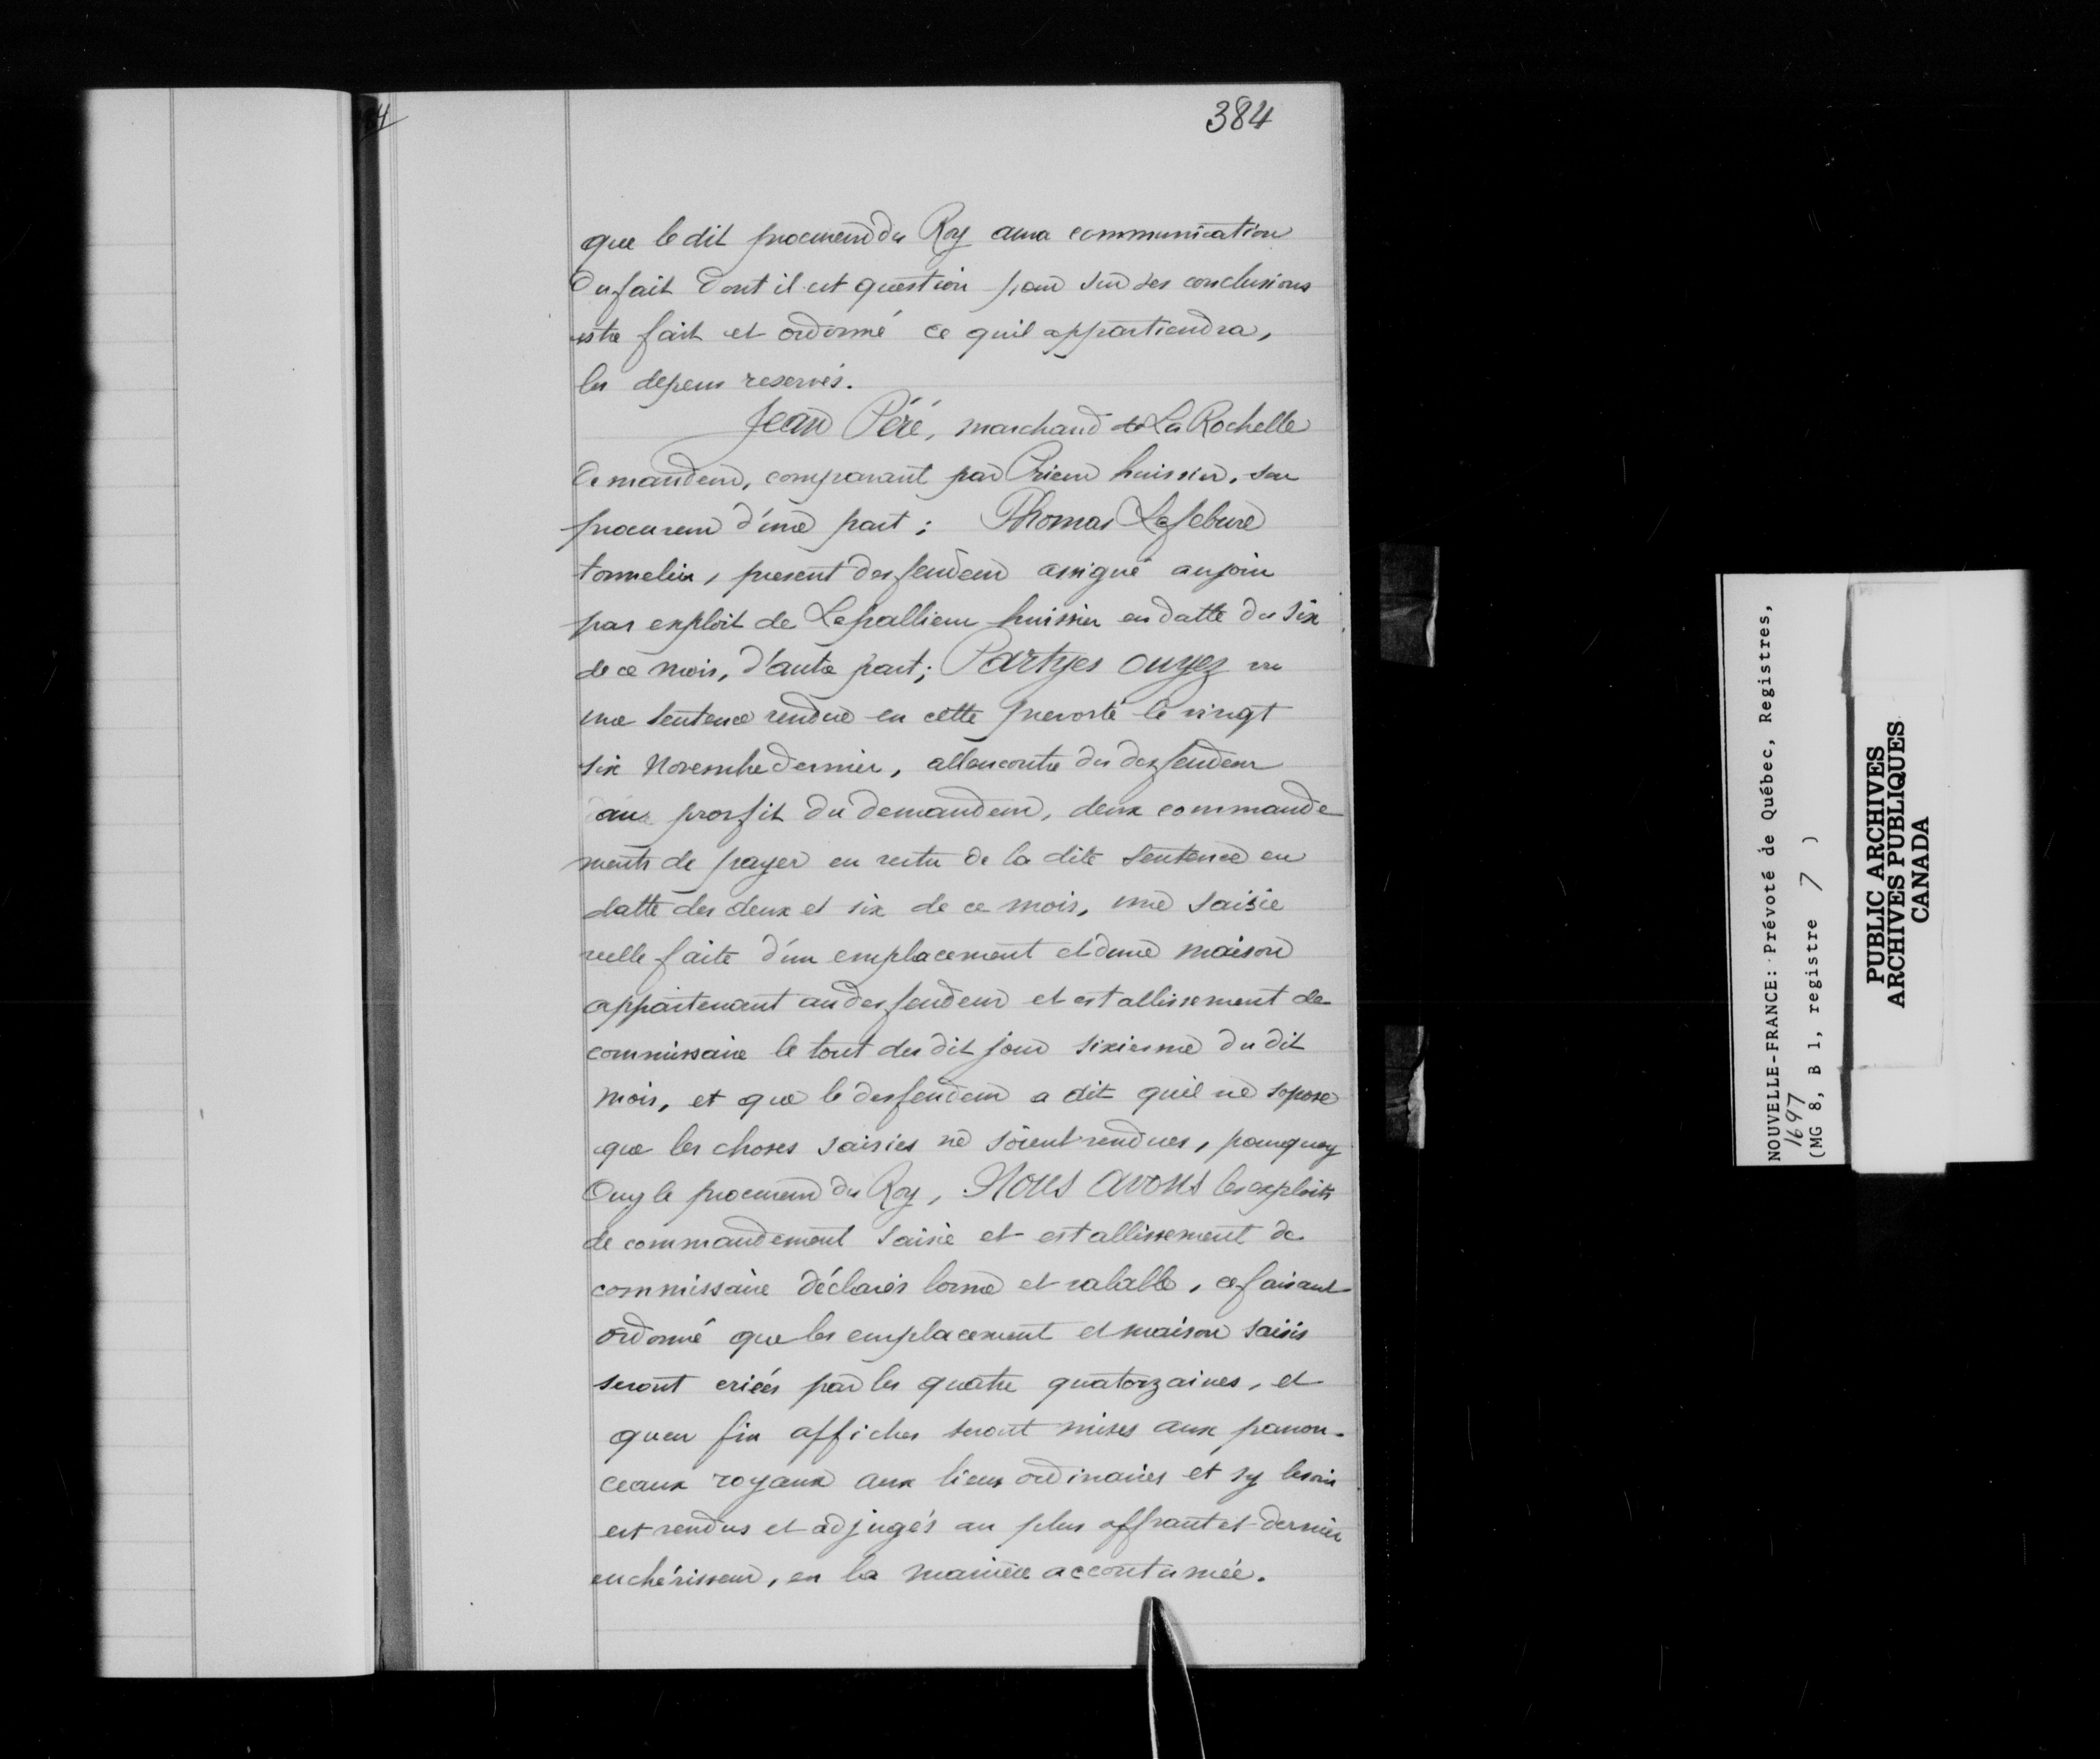 84
384
que le dit procureur du Roy aura communication
du fait dont il est question pour sur ses conclusions
estre fait et ordonné ce quil appartiendra,
les depens reservés.
Jean Péré, marchand de La Rochelle
demandeur, comparant par Prieur huissier, son
procureur d'une part; Thomas Lefebure
tonnelier, present desfendeur assigné aujour
par exploit de Lepallieur huissier en datte du six
de ce mois, d'autre part; Partyes ouyez vu
une sentence rendue en cette prevosté le vingt
six Novembre dernier, allencontre du desfendeur
au proffit du demandeur, deux commande
ments de payer en vertu de la dite sentence en
datte des deux et six de ce mois, une saisie
reelle faite d'un emplacement et dune maison
appartenant au desfendeur et establissement de
commissaire le tout du dit jour sixiesme du dit
mois, et que le desfendeur a dit quil ne sopose
que les choses saisies ne soient vendues, pourquoy
Ouy le procureur du Roy, Nous avons les exploits
de commandement saisie et establissement de
commissaire déclarés bonne et valable, ce faisant
ordonné que les emplacement et maison saisis
seront criées par les quatre quatorzaines, et
quen fin affiches seront mises aux panon-
ceaux royaux aux lieux ordinaires et sy besoin
est vendus et adjugés au plus offrant et dernier
enchérisseur, en la manière accoutumée.
NOUVELLE-FRANCE: Prévoté de Québec, Registres,
1697
(MG 8, B 1, registre 7 )
PUBLIC ARCHIVES
ARCHIVES PUBLIQUES
CANADA